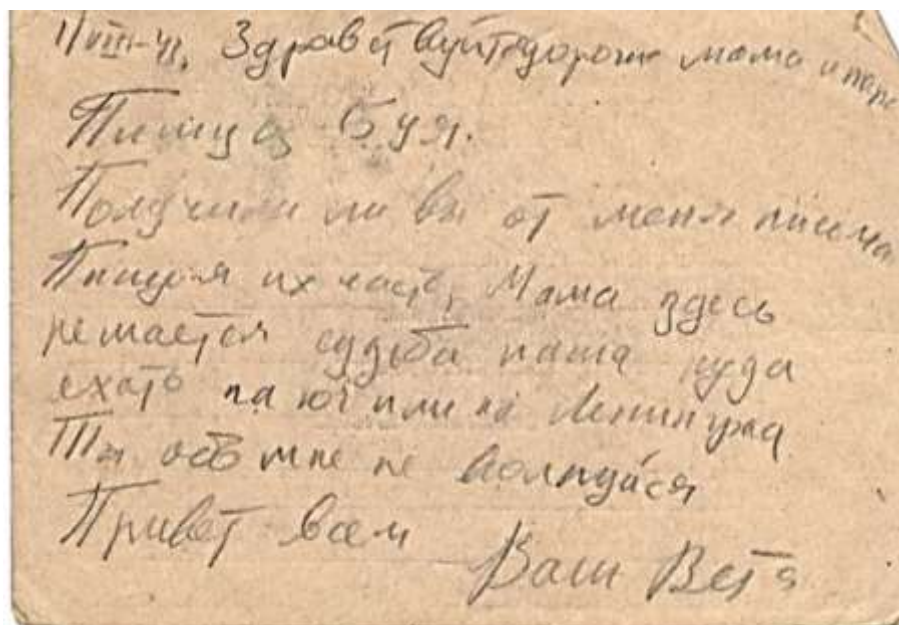 11/VIII-41. Здравствуйте дорогие мама и папа
Пишу из Буя.
Получили ли вы от меня письма
Пишу я их часто, Мама здесь
решается судьба наша куда
ехать на юг или на Ленинград
Ты обо мне не волнуйся
Привет всем
Ваш Ветя